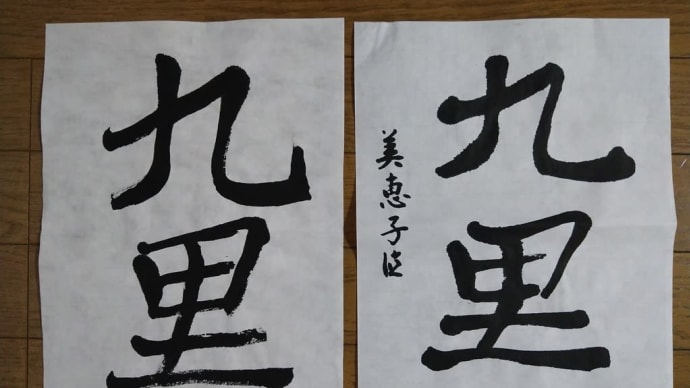 九里
美恵子臨
九里